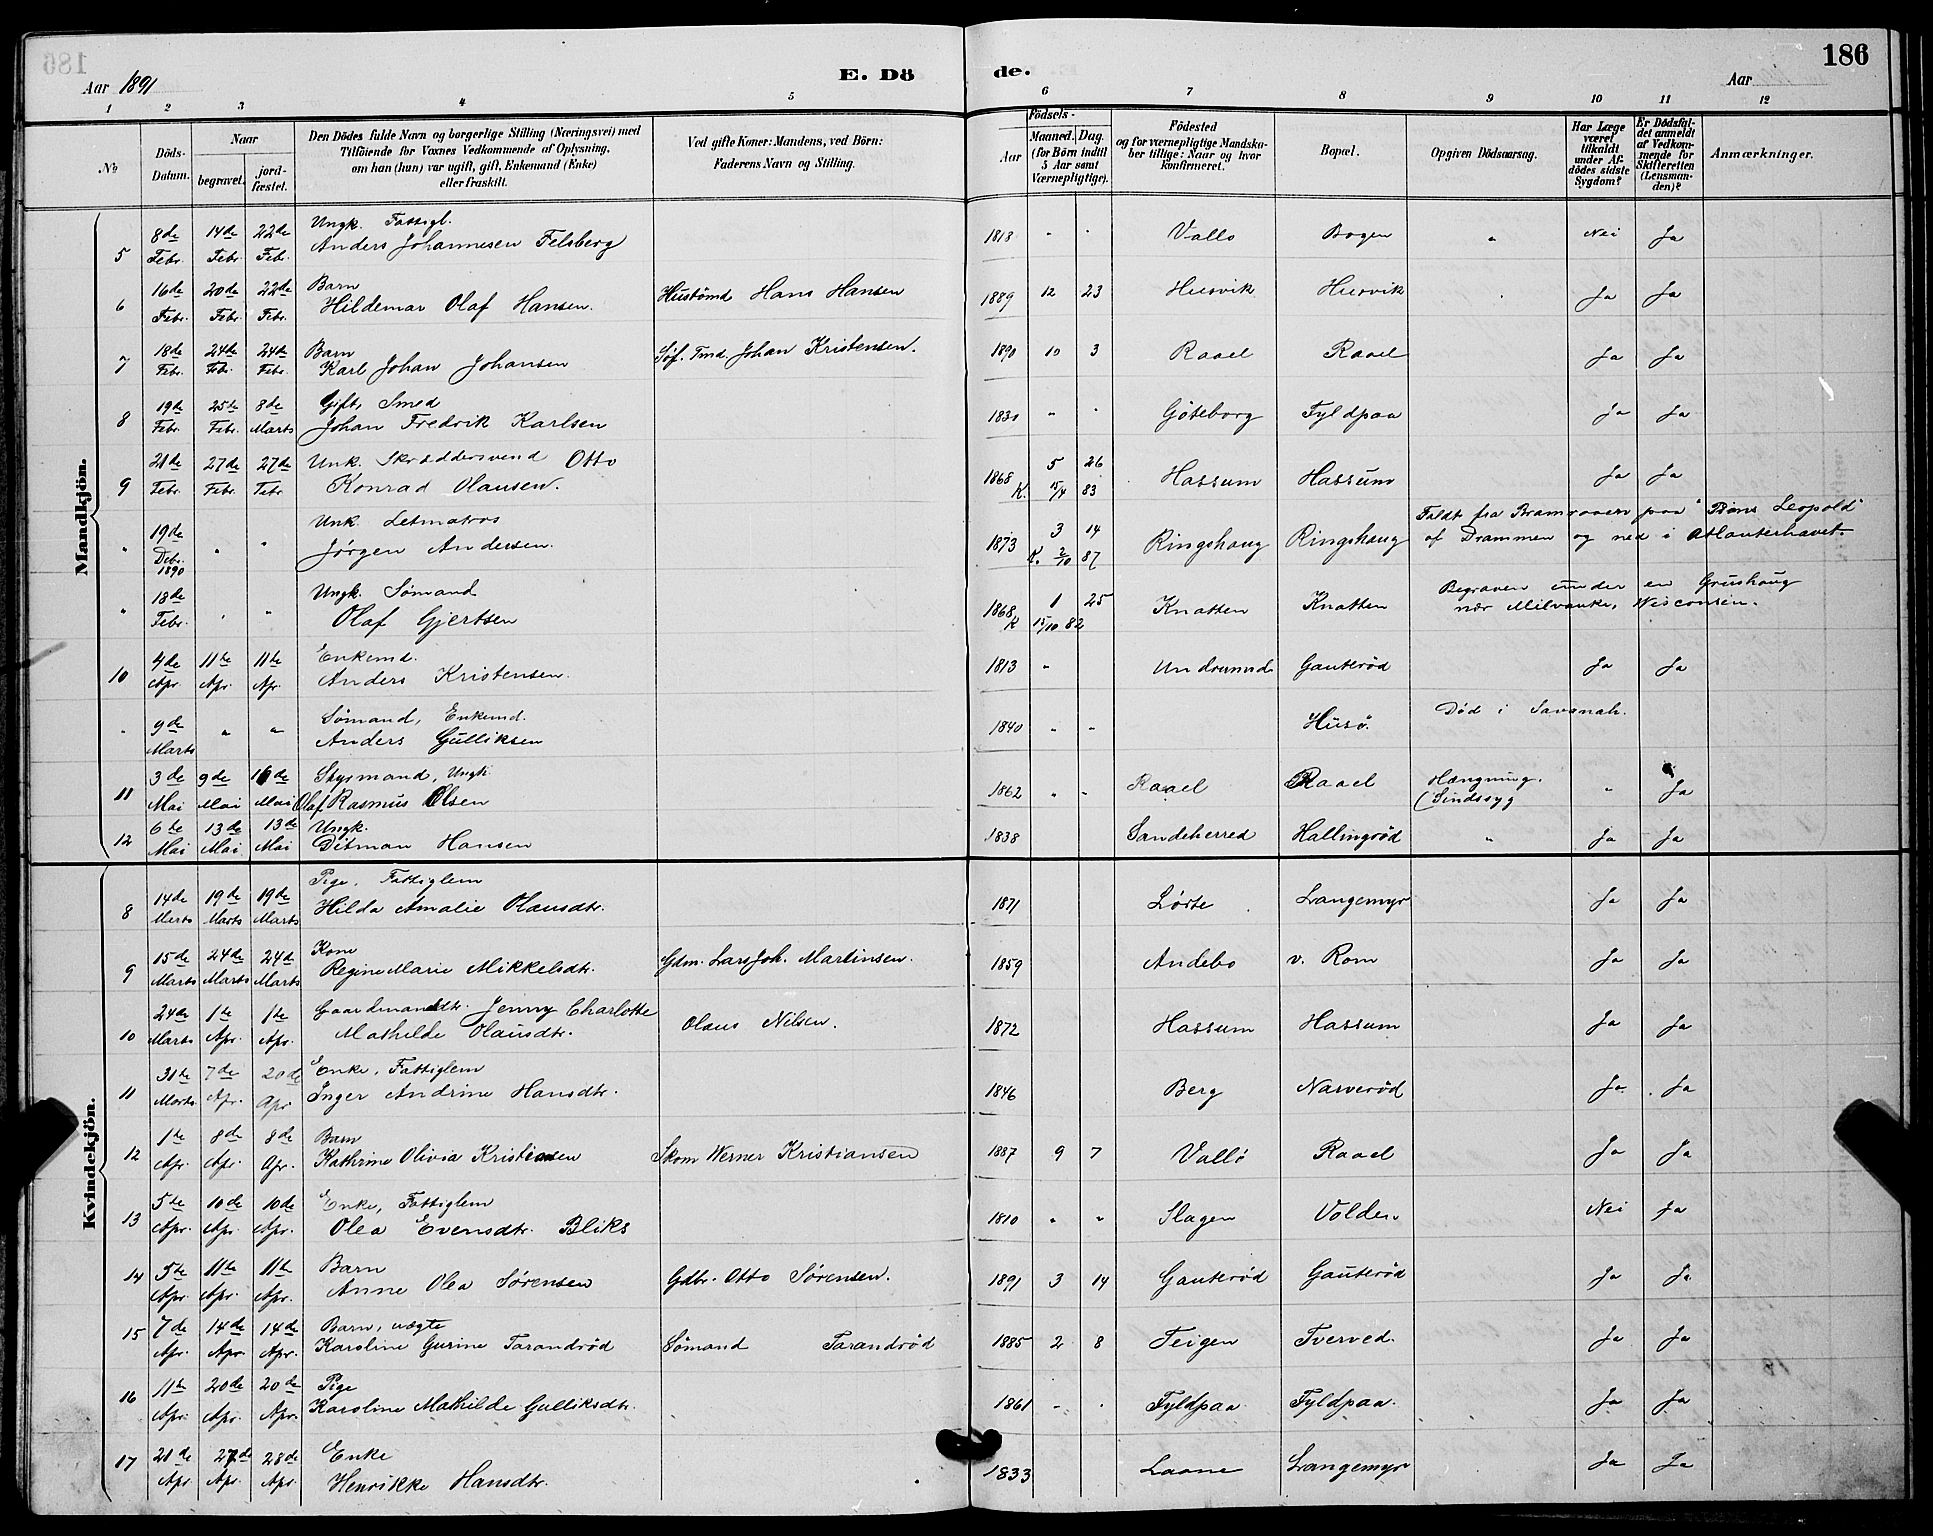 186
Aar 1891
E. Dö de.
Aar
1 2 3 4 5 6 7 8 9 10 11 12
No
Döds-Datum.
Naar
begravet.
jordfæstet.
Den Dödes fulde Navn og borgerlige Stilling (Næringsvei) med Tilföiende for Voxnes Vedkommende af Oplysning, om han (hun) var ugift, gift, Enkemand (Enke) eller fraskilt.
Ved gifte Koner: Mandens, ved Börn: Faderens Navn og Stilling.
Födsels-
Aar
Maaned.
Dag.
(for Börn indtil 5 Aar samt Værnepligtige).
Födested og for værnepligtige Mandskaber tillige: Naar og hvor konfirmeret.
Bopæl.
Opgiven Dödsaarsag.
Har Læge været tilkaldt under Afdödes sidste Sygdom?
Er Dödsfaldet anmeldt af Vedkommende for Skifteretten (Lensmanden)?
Anmærkninger.
Mandkjön.
5 8de Febr. 14de Febr. 22de Febr. Ungk. Fattigl. Anders Johannesen Felsberg 1818 " " Vallø Bogen " Nei Ja
6 16de Febr. 20de Febr. 22de Febr. Barn Hildemar Olaf Hansen. Hustømd Hans Hansen 1889 12 23 Husvik Husvik Ja Ja
7 18de Febr. 24de Febr. 24de Febr. Barn Karl Johan Johansen Søf. Tmd. Johan Kristensen. 1890 10 3 Raael Raael Ja Ja
8 19de Febr. 25te Febr. 8de Marts Gift, Smed Johan Fredrik Karlsen 1830 " " Gøteborg Fyldpaa Ja Ja
9 21de Febr. 27de Febr. 27de Febr. Unk. Skræddersvend Otto Konrad Olausen. 1868 5 26 K. 15/4 83 Hassum Hassum Ja Ja
" 19de Debr. 1890 " " Unk. Letmatros Jørgen Andersen. 1873 3 14 K. 2/10 87 Ringshaug Ringshaug Faldt fra Bramraaen paa "Prins Leopold" af Drammen og ned i Atlanterhavet.
" 18de Febr. " " Ungk. Sømand Olaf Gjertsen 1868 1 25 K 15/10 82 Knatten Knatten Begraven under en Grushaug nær Milvauke, Wisconsin.
10 4de Apr. 11te Apr. 11te Apr. Enkemd. Anders Kristensen. 1813 " Undrumsd Gauterød Ja Ja
" 9de Marts " " Sømand, Enkemd. Anders Gulliksen 1840 " " Husø. Død i Savanah.
11 3de Mai 9de Mai 16de Mai Styrmand, Ungk. Olaf Rasmus Olsen 1862 " " Raael Raael Hængning. (Sindssyg " Ja
12 6te Mai 13de Mai 13de Mai Ungk. Ditman Hansen 1838 Sandeherred Hallingrød " Ja Ja
Kvindekjön.
8 14de Marts 19de Marts 19de Marts Pige, Fattiglem Hilda Amalie Olausdtr. 1871 Lørte Langemyr Ja Ja
9 15de Marts 24de Marts 24de Marts Kone Regine Marie Mikkelsdtr. Gdm. Lars Joh. Martinsen. 1859 Andebo v. Rom Ja Ja
10 24de Marts 1te Apr. 1te Apr. Gaardmandsdtr. Jenny Charlotte Mathilde Olausdtr. Olaus Nilsen. 1872 Hassum Hassum Ja Ja
11 31te Marts 7de Apr. 20de Apr Enke, Fattiglem Inger Andrine Hansdtr. 1846 Berg Narverød Ja Ja
12 1te Apr. 8de Apr. 8de Apr. Barn Kathrine Olivia Kristiansen Skom Werner Kristiansen 1887 9 7 Vallö Raael Ja Ja
13 5te Apr. 10de Apr. 10de Apr. Enke, Fattiglem Olea Evensdtr. Bliks 1810 " " Slagen Volden Nei Ja
14 5te Apr. 11te Apr. 11te Apr. Barn Anne Olea Sørensen Gdbr. Otto Sørensen. 1891 3 14 Gauterød Gauterød Ja Ja
15 7de Apr. 14de Apr. 14de Apr. Barn, uægte Karoline Gurine Tarandrød Sømand Tarandrød 1885 2 8 Teigen Tverved. Ja Ja
16 11te Apr. 20de Apr. 20de Apr. Pige Karoline Mathilde Gulliksdtr. 1861 " " Fyldpaa Fyldpaa. Ja Ja
17 21de Apr. 27de Apr. 28de Apr. Enke Henrikke Hansdtr. 1833 Laane Langemyr Ja Ja